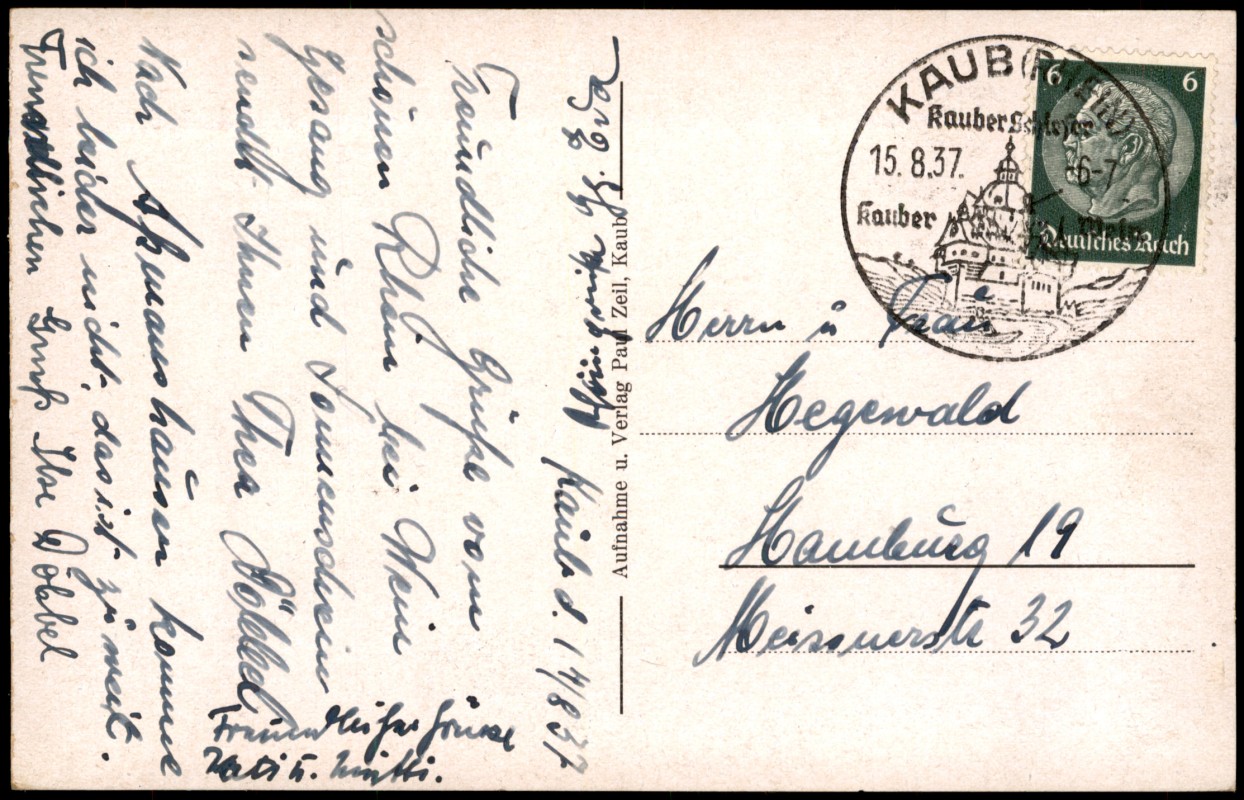 Kaub d. 14/8 37
Freundliche Grüße vom
schönen Rhein bei Wein
Gesang und Sonnenschein
sendt Ihnen Thea Döbbel
Nach Aßmannshausen komme
ich leider nicht, das ist zu weit.
Freundlichen Gruß Ihr Döbbel
Freundliche Grüsse
u.
Aufnahme u. Verlag Paul Zeil, Kaub
KAUB (RHEIN)
Kauber Schlösser
15.8.37. 6-7
Kauber Wein
6 6
Deutsches Reich
Herrn u Frau
Hegewald
Hamburg 19
Meissnerstr 32